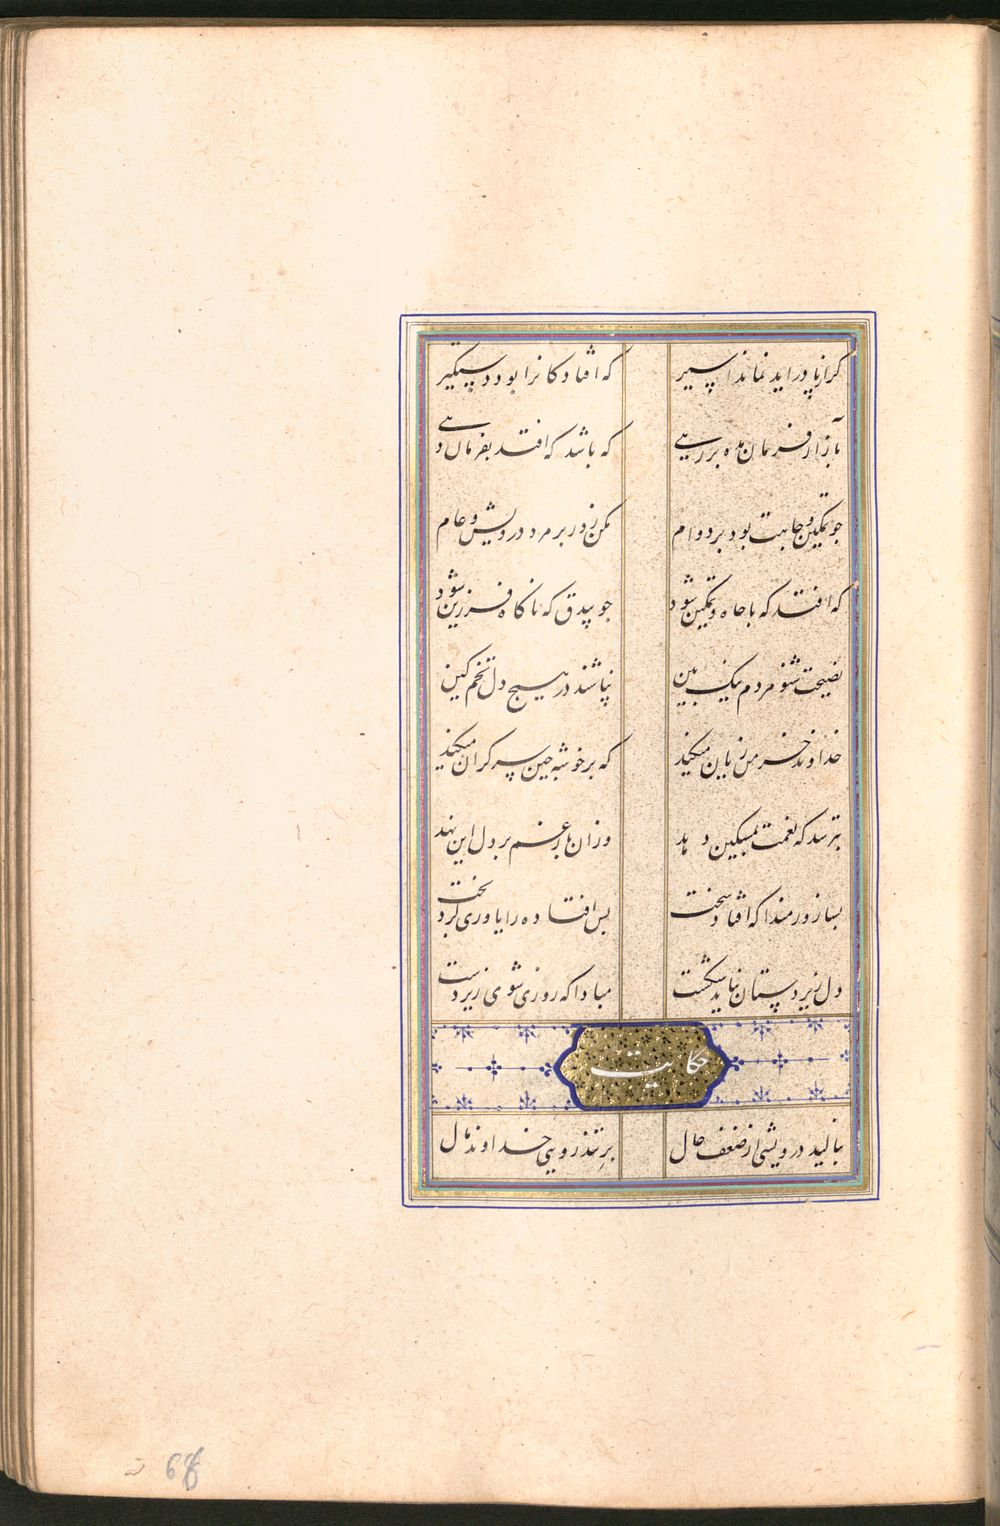 کر از پا دراید نماند اسیر که افتادکانرا بود دستکیر
بآزار فرمان مده بر رهی که باشد که افتد بفرمان دهی
جو تمکین و جاهت بود بر دوام مکن زور بر مرد درویش و عام
که افتد که با جاه و تمکین شود جو بیدق که ناکاه فرزین شود
نصیحت شنو مردم نیک بین نپاشند در هیچ دل تخم کین
خداوند خرمن زیان میکند که بر خوشه جین سر کران میکند
بترسد که نعمت بمسکین دهد وزان بار غم بر دل این نهد
بسا زورمندا که افتاد سخت بس افتاده را یاوری کرد بخت
دل زیردستان نباید شکست مبادا که روزی شوی زیردست
حکایت
بنالید درویشی از ضعف حال بر تندرویی خداوند مال
68